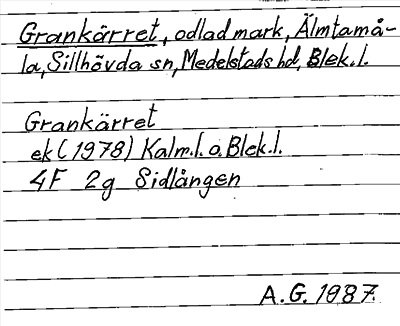 Grankärret, odlad mark, Älmtamå-
la, Sillhövda sn, Medelstads hd, Blek. l.
Grankärret
ek (1978) Kalm. l. o. Blek. l.
4F 2g Sidlången
A. G. 1987.